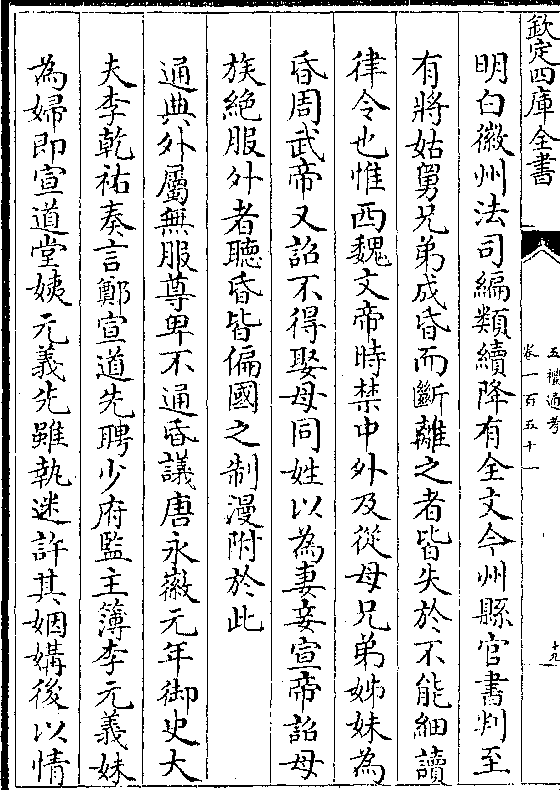 欽定四庫全書
五禮通考
卷一百五十一
十九
明白徽州法司編類續降有全文今州縣官書判至
有將姑舅兄弟成昏而斷離之者皆失於不能細讀
律令也惟西魏文帝時禁中外及從母兄弟姊妹為
昏周武帝又詔不得娶母同姓以為妻妾宣帝詔母
族絕服外者聽昏皆偏國之制漫附於此
通典外屬無服尊卑不通昏議唐永徽元年御史大
夫李乾祐奏言鄭宣道先聘少府監主簿李元義妹
為婦即宣道堂姨元義先雖執迷許其姻媾後以情